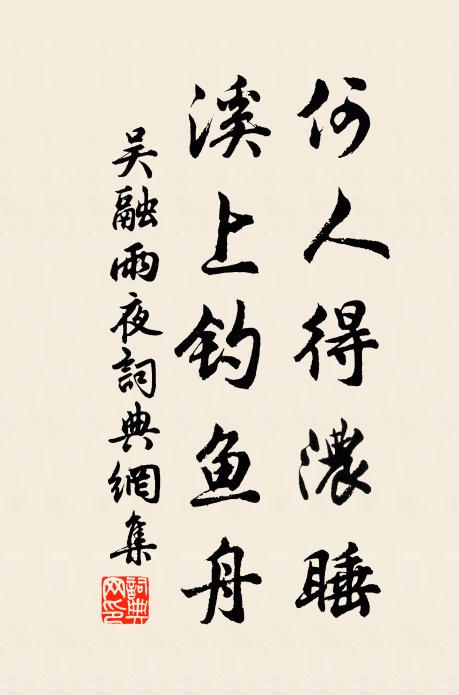 何人得濃睡
溪上钓鱼舟
吴融雨夜詞典網集
詞典网印